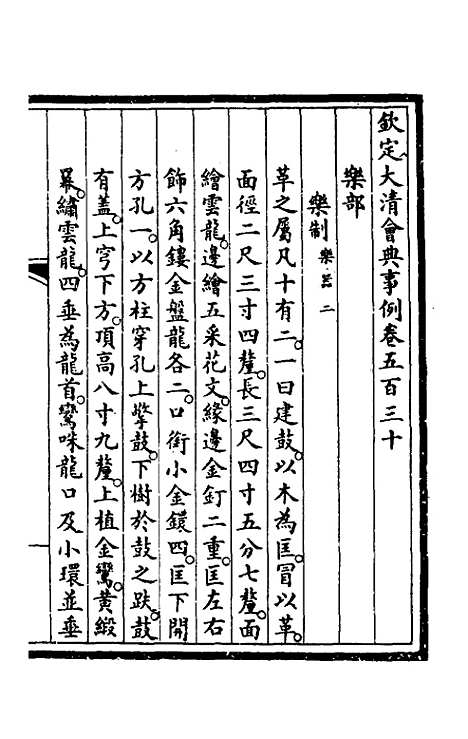 欽定大清會典事例卷五百三十
樂部
樂制樂器二
革之屬凡十有二。一曰建鼓。以木為匡。冒以革。
面徑二尺三寸四釐。長三尺四寸五分七釐。面
繪雲龍。邊繪五采花文。緣邊金釘二重。匡左右
飾六角鏤金盤龍各二。口銜小金鐶四。匡下開
方孔一。以方柱穿孔上擎鼓。下樹於鼓之趺。鼓
有蓋。上穹下方。頂高八寸九釐。上植金鸞。黃緞
冪。繡雲龍。四垂為龍首。鸞咮龍口及小環並垂